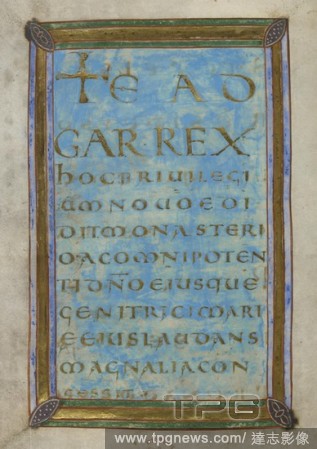 ✝EAD
GAR·REX
hOCPRIUILEGI
UMNOUOEDI
DITMONASTERI
OACOMNIPOTEN
TIDÑOEIUSQUE
GENITRICIMARI
EEIUSLAUDANS
MAGNALIACON
CESSIT
TPG
www.tpgnews.com/ 達志影像